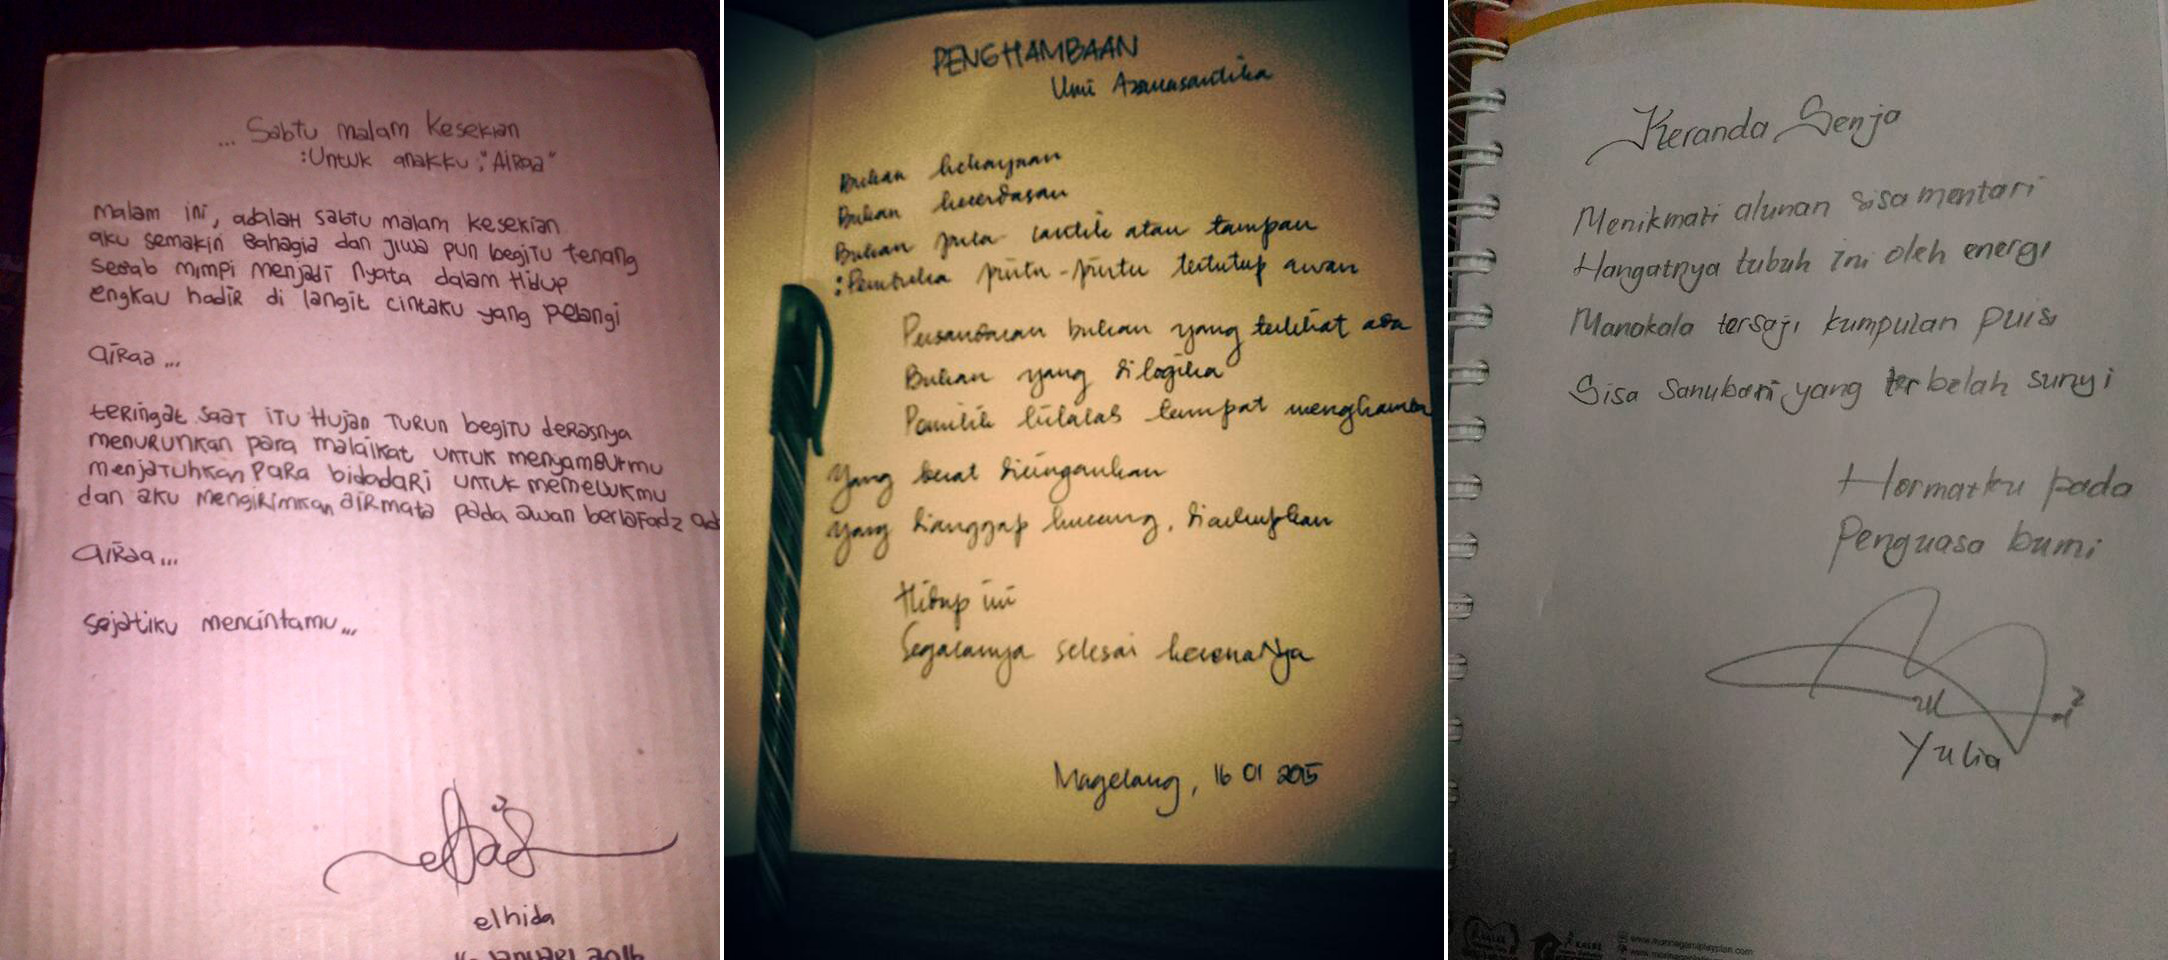 ... Sabtu malam Kesekian
: Untuk anakku ; "AiRaa"
malam ini, adalah sabtu malam kesekian
aku semakin Bahagia dan jiwa pun begitu tenang
sebab mimpi menjadi nyata dalam Hidup
engkau hadiR di langit cintaku yang pelangi
aiRaa ...
teringat saat itu Hujan Turun begitu derasnya
menurunkan para malaikat untuk menyambutmu
menjatuhkan para bidadari untuk memelukmu
dan aku mengirimkan airmata pada awan berlafadz
aiRaa ...
sejatiku mencintamu ...
elhida
16 januari 2016
PENGHAMBAAN
Umi
Bukan kekayaan
Bukan kecerdasan
Bukan pula cantik atau tampan
: Pembuka pintu-pintu tertutup awan
Persandaran bukan yang terlihat ada
Bukan yang dilogika
Pemilik tempat menghamba
Yang berat diringankan
Yang dianggap kurang, dicukupkan
Hidup ini
Segalanya selesai karenaNya
Magelang, 16 01 2015
Keranda Senja
Menikmati alunan sisa mentari
Hangatnya tubuh ini oleh energi
Manakala tersaji kumpulan puisi
Sisa sanubari yang terbelah sunyi
Hormatku pada
Penguasa bumi
Yulia
KALBE